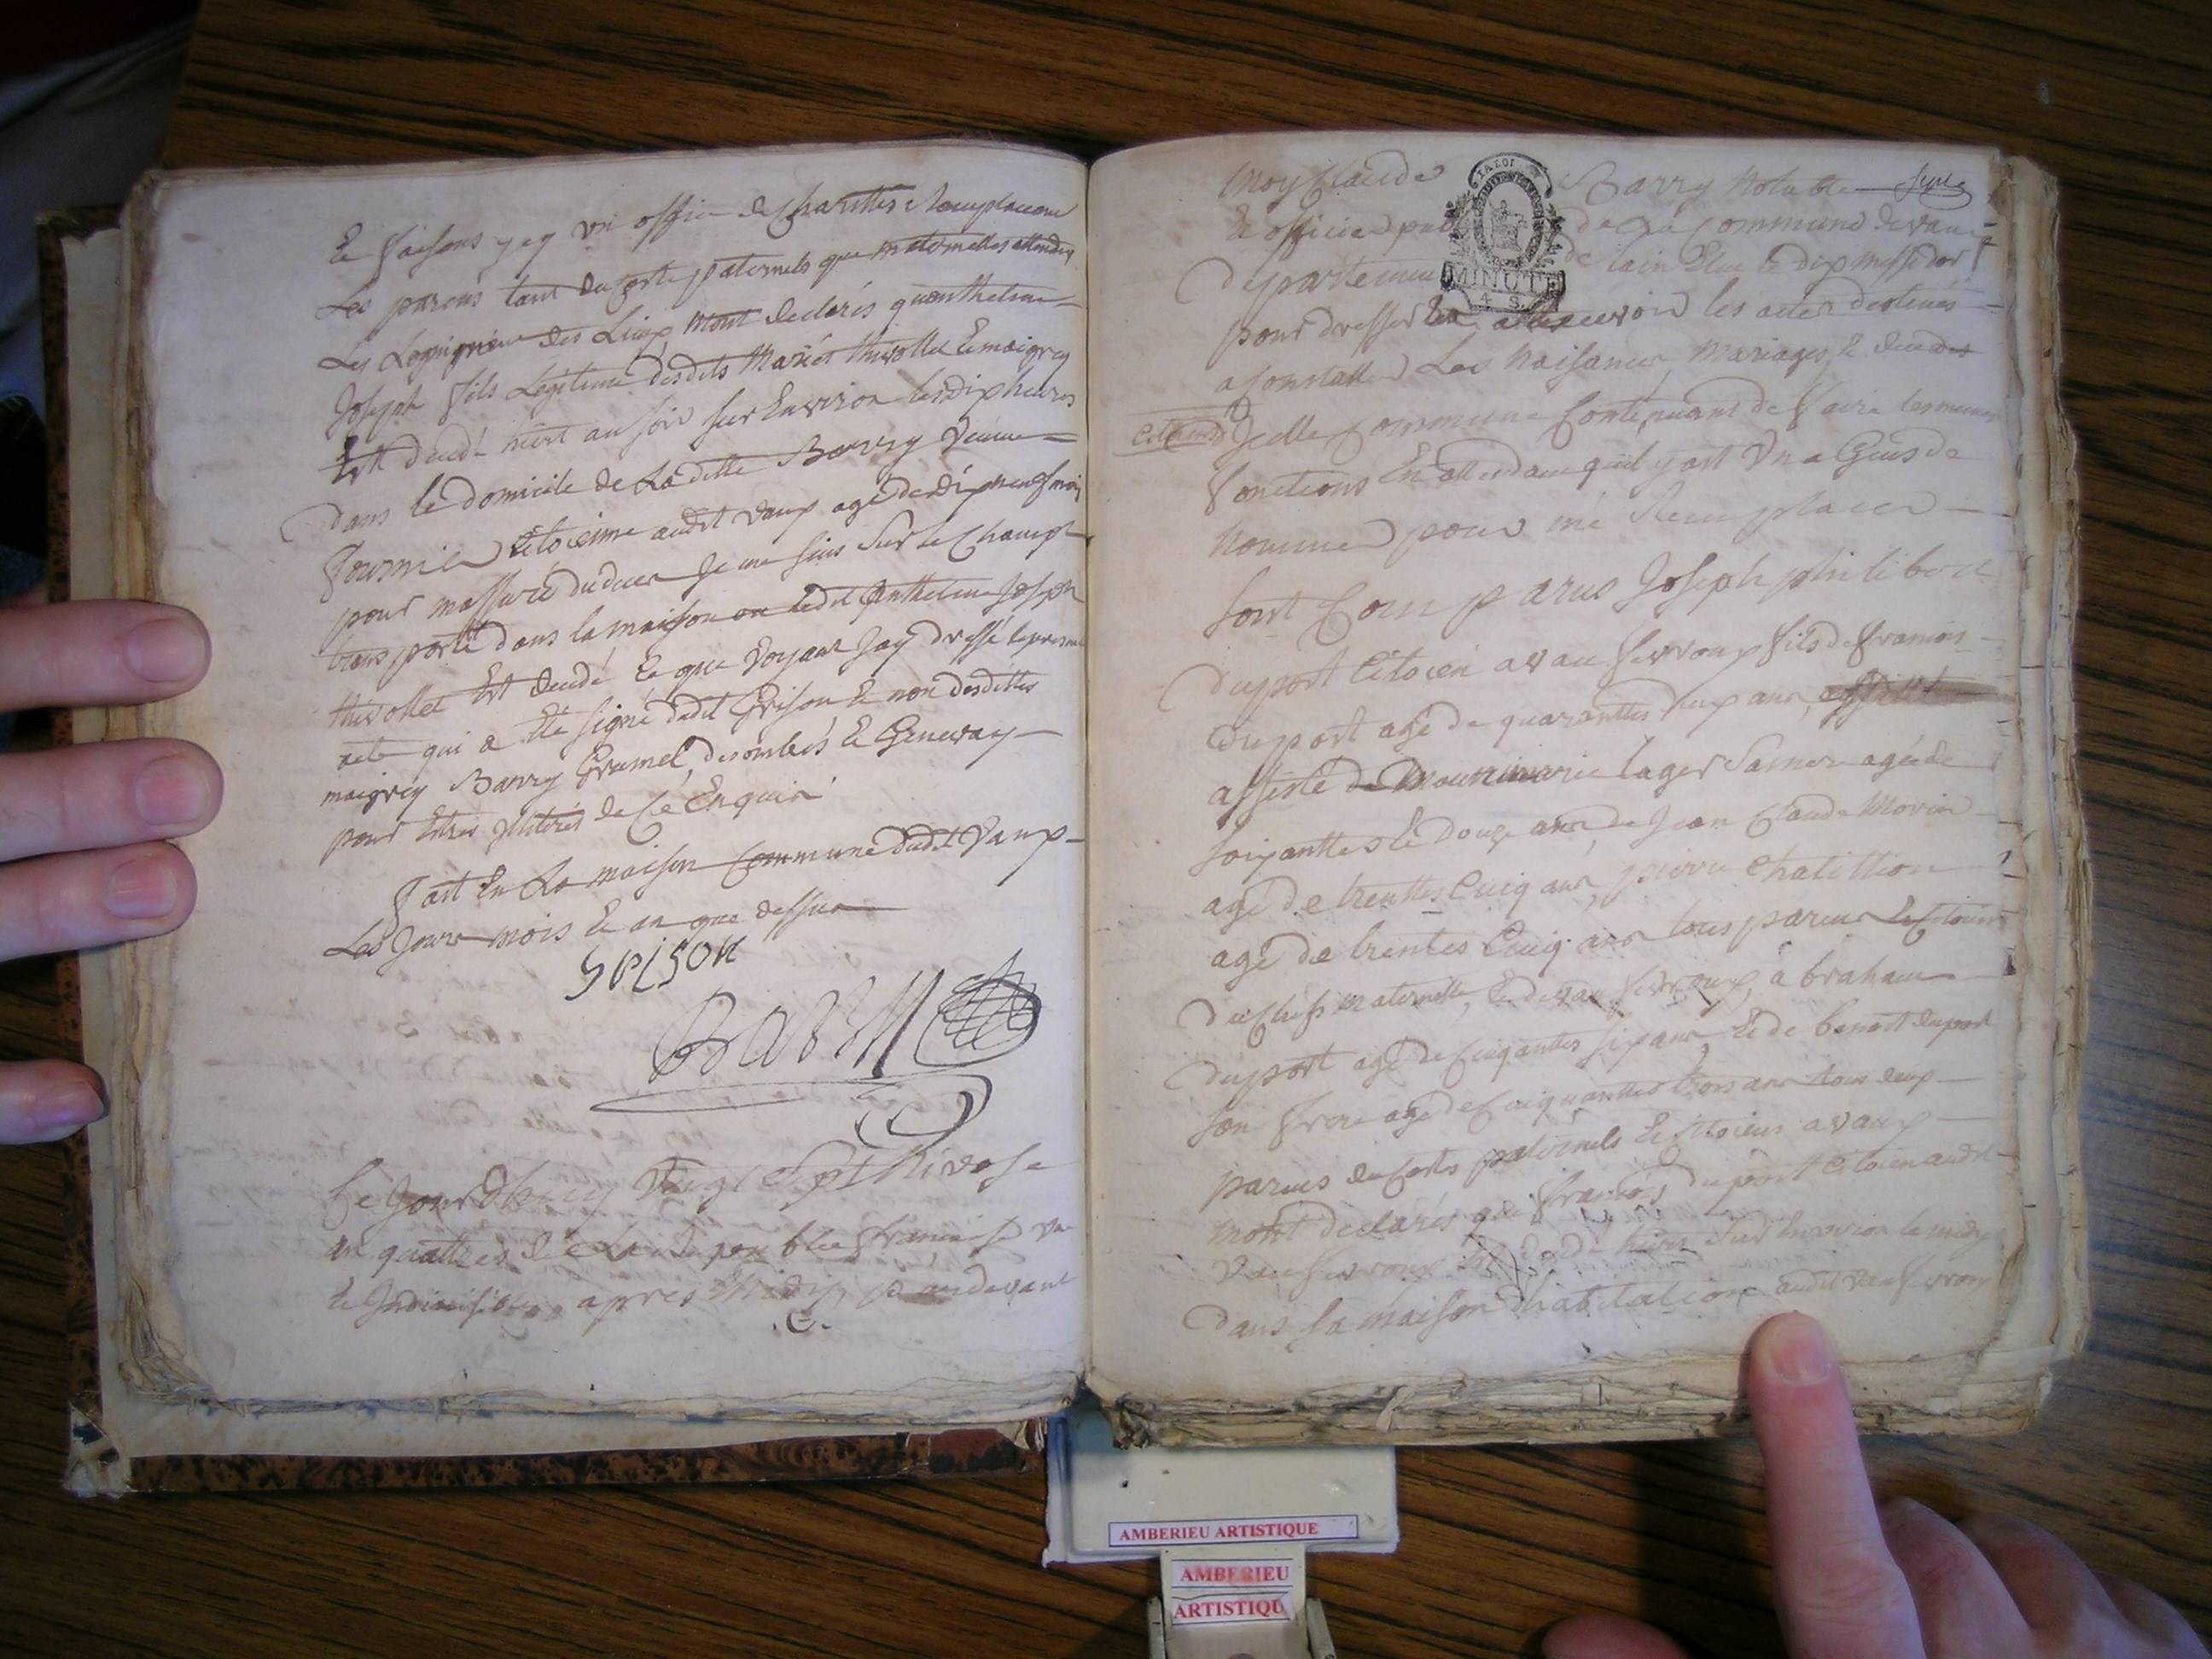 Et faisons y ey un office de charittes Remplacent
Les parens tant du Corte paternels que maternelles attendu
Les Loyngnieur des Lieux mont declarés quanthelme
Joseph fils Legitime desdits Mariés thivollet Et maigrey
Est decedé hiert au soir sur Environ les dix heures
dans le domicile de Laditte Barry veuve
fournier Citoienne audit vaux agé de dix neuf mois
pour massuré du deces Je me suis Sur le Champt
trensporté dans la maison ou ledit Anthelme Joseph
thivollet Est decedé Ce que voyant Jay dressé le present
acte qui a été signé dudit Grison Et non desdittes
maigrey Barry Grumel, desombés Et Genevay
pour Estres Illiterés de Ce Enquis
fait En La maison Commune dudit Vaux
Les Jours mois Et an que dessus
Grison
Barry
Ce Jourdhuy Vingt Sept Nivose
an quattres de La Republice francaise une
Et Indivisible apres Midy pardevant
Moy Claude Barry Notable
Et officier public de La Commune de vaux
Departement de lain Elue le dix messidor
pour dresser les actes destinés
a Constatter Les Naisances, Mariages, Et deces
Icelle Commune Continuant de faire les memes
fonctions En attendant quil y ait Un a Gens de
Nommer pour me Remplacer
Sont Comparus Joseph philibert
duport Citoien a vau fevroux fils de francois
duport agé de quarantte deux ans
assisté de lager agée de
Soixantte Et douze ans de Jean Claude Movin
agé de trentte Cinq ans pierre Chatillion
agé de trentes Cinq ans tous parens
du Chefs maternelle, de vau fevroux, abraham
duport agé de Cinqantte six ans Et de benoit duport
son frere agé de Cinquantte trois ans tous deux
parens du Cortes paternels Et Citoiens a vaux
mont declarés que francois duport Citoien audit
vau fevroux Est decedé hiert sur Environ le midy
dans sa maison dhabitation audit vau fevroux
LA LOI
MINUTE
4 S.
AMBERIEU ARTISTIQUE
AMBERIEU
ARTISTIQU